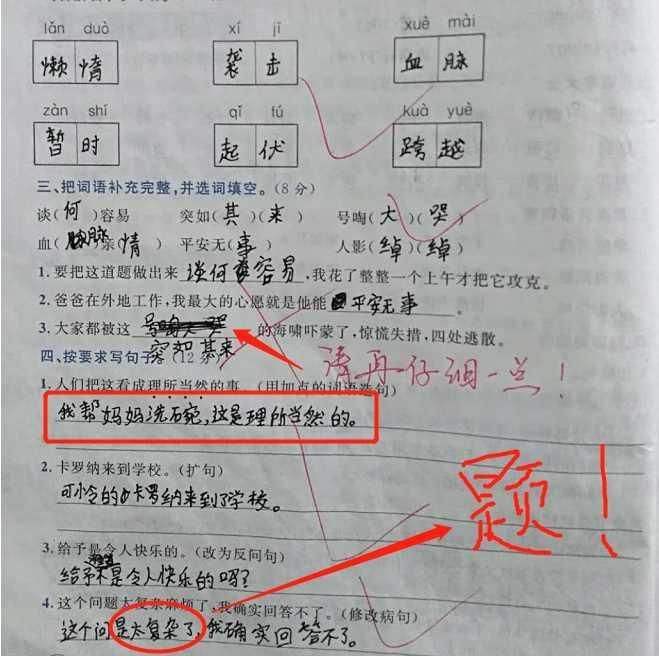 lǎn duò xí jī xuè mài
懒惰 袭击 血脉
zàn shí qǐ fú kuà yuè
暂时 起伏 跨越
三、把词语补充完整,并选词填空。(8分)
谈(何)容易 突如(其)(来) 号啕(大)(哭)
血(脉)亲(情) 平安无(事) 人影(绰)(绰)
1.要把这道题做出来 谈何容易 ,我花了整整一个上午才把它攻克。
2.爸爸在外地工作,我最大的心愿就是他能 平安无事 。
3.大家都被这 的海啸吓蒙了,惊慌失措,四处逃散。
突如其来
四、按要求写句子。(12分)
请再仔细一点!
1.人们把这看成理所当然的事。(用加点的词语造句)
我帮妈妈洗碗,这是理所当然的。
2.卡罗纳来到学校。(扩句)
可怜的卡罗纳来到了学校。
题!
3.给予是令人快乐的。(改为反问句)
给予不是令人快乐的吗?
4.这个问题太复杂麻烦了,我确实回答不了。(修改病句)
这个问是太复杂了,我确实回答不了。